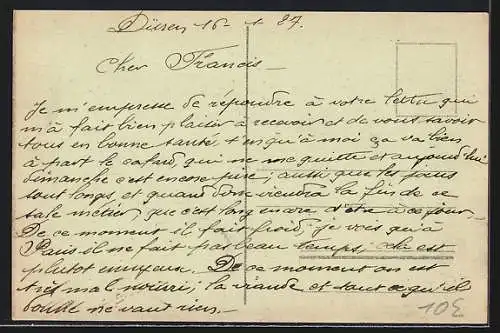 Düren 16-1 27.
Cher Francis —
Je m'empresse de répondre à votre lettre qui
m'a fait bien plaisir à recevoir et de vous savoir
tous en bonne santé tendis qu'à moi ça va bien
à part le cafard, qui ne me quitte et aujourd'hui
dimanche c'est encore pire; aussi que les jours
sont longs, et quand donc viendra la fin de ce
sale métier, que c'est long encore d'être à ce jour.
De ce moment il fait froid, je vois qu'à
Paris il ne fait pas beau temps, ce est
plutot ennuyeux. De ce moment on est
très mal nourri; la viande et tout ce qu'il
donne ne vaut rien. —
10€